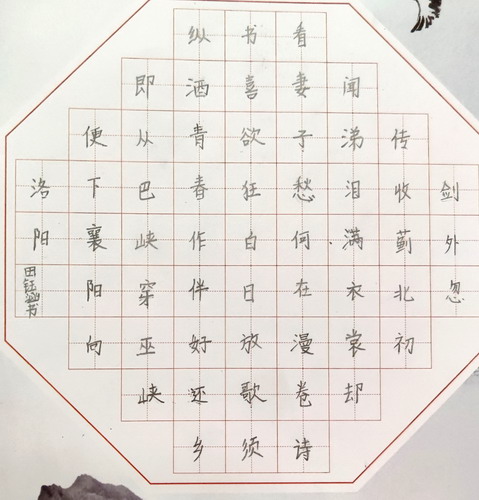 剑外忽
传收蓟北初
闻涕泪满衣裳却
看妻子愁何在漫卷诗
书喜欲狂白日放歌须
纵酒青春作伴好还乡
即从巴峡穿巫峡
便下襄阳向
洛阳
田钰书